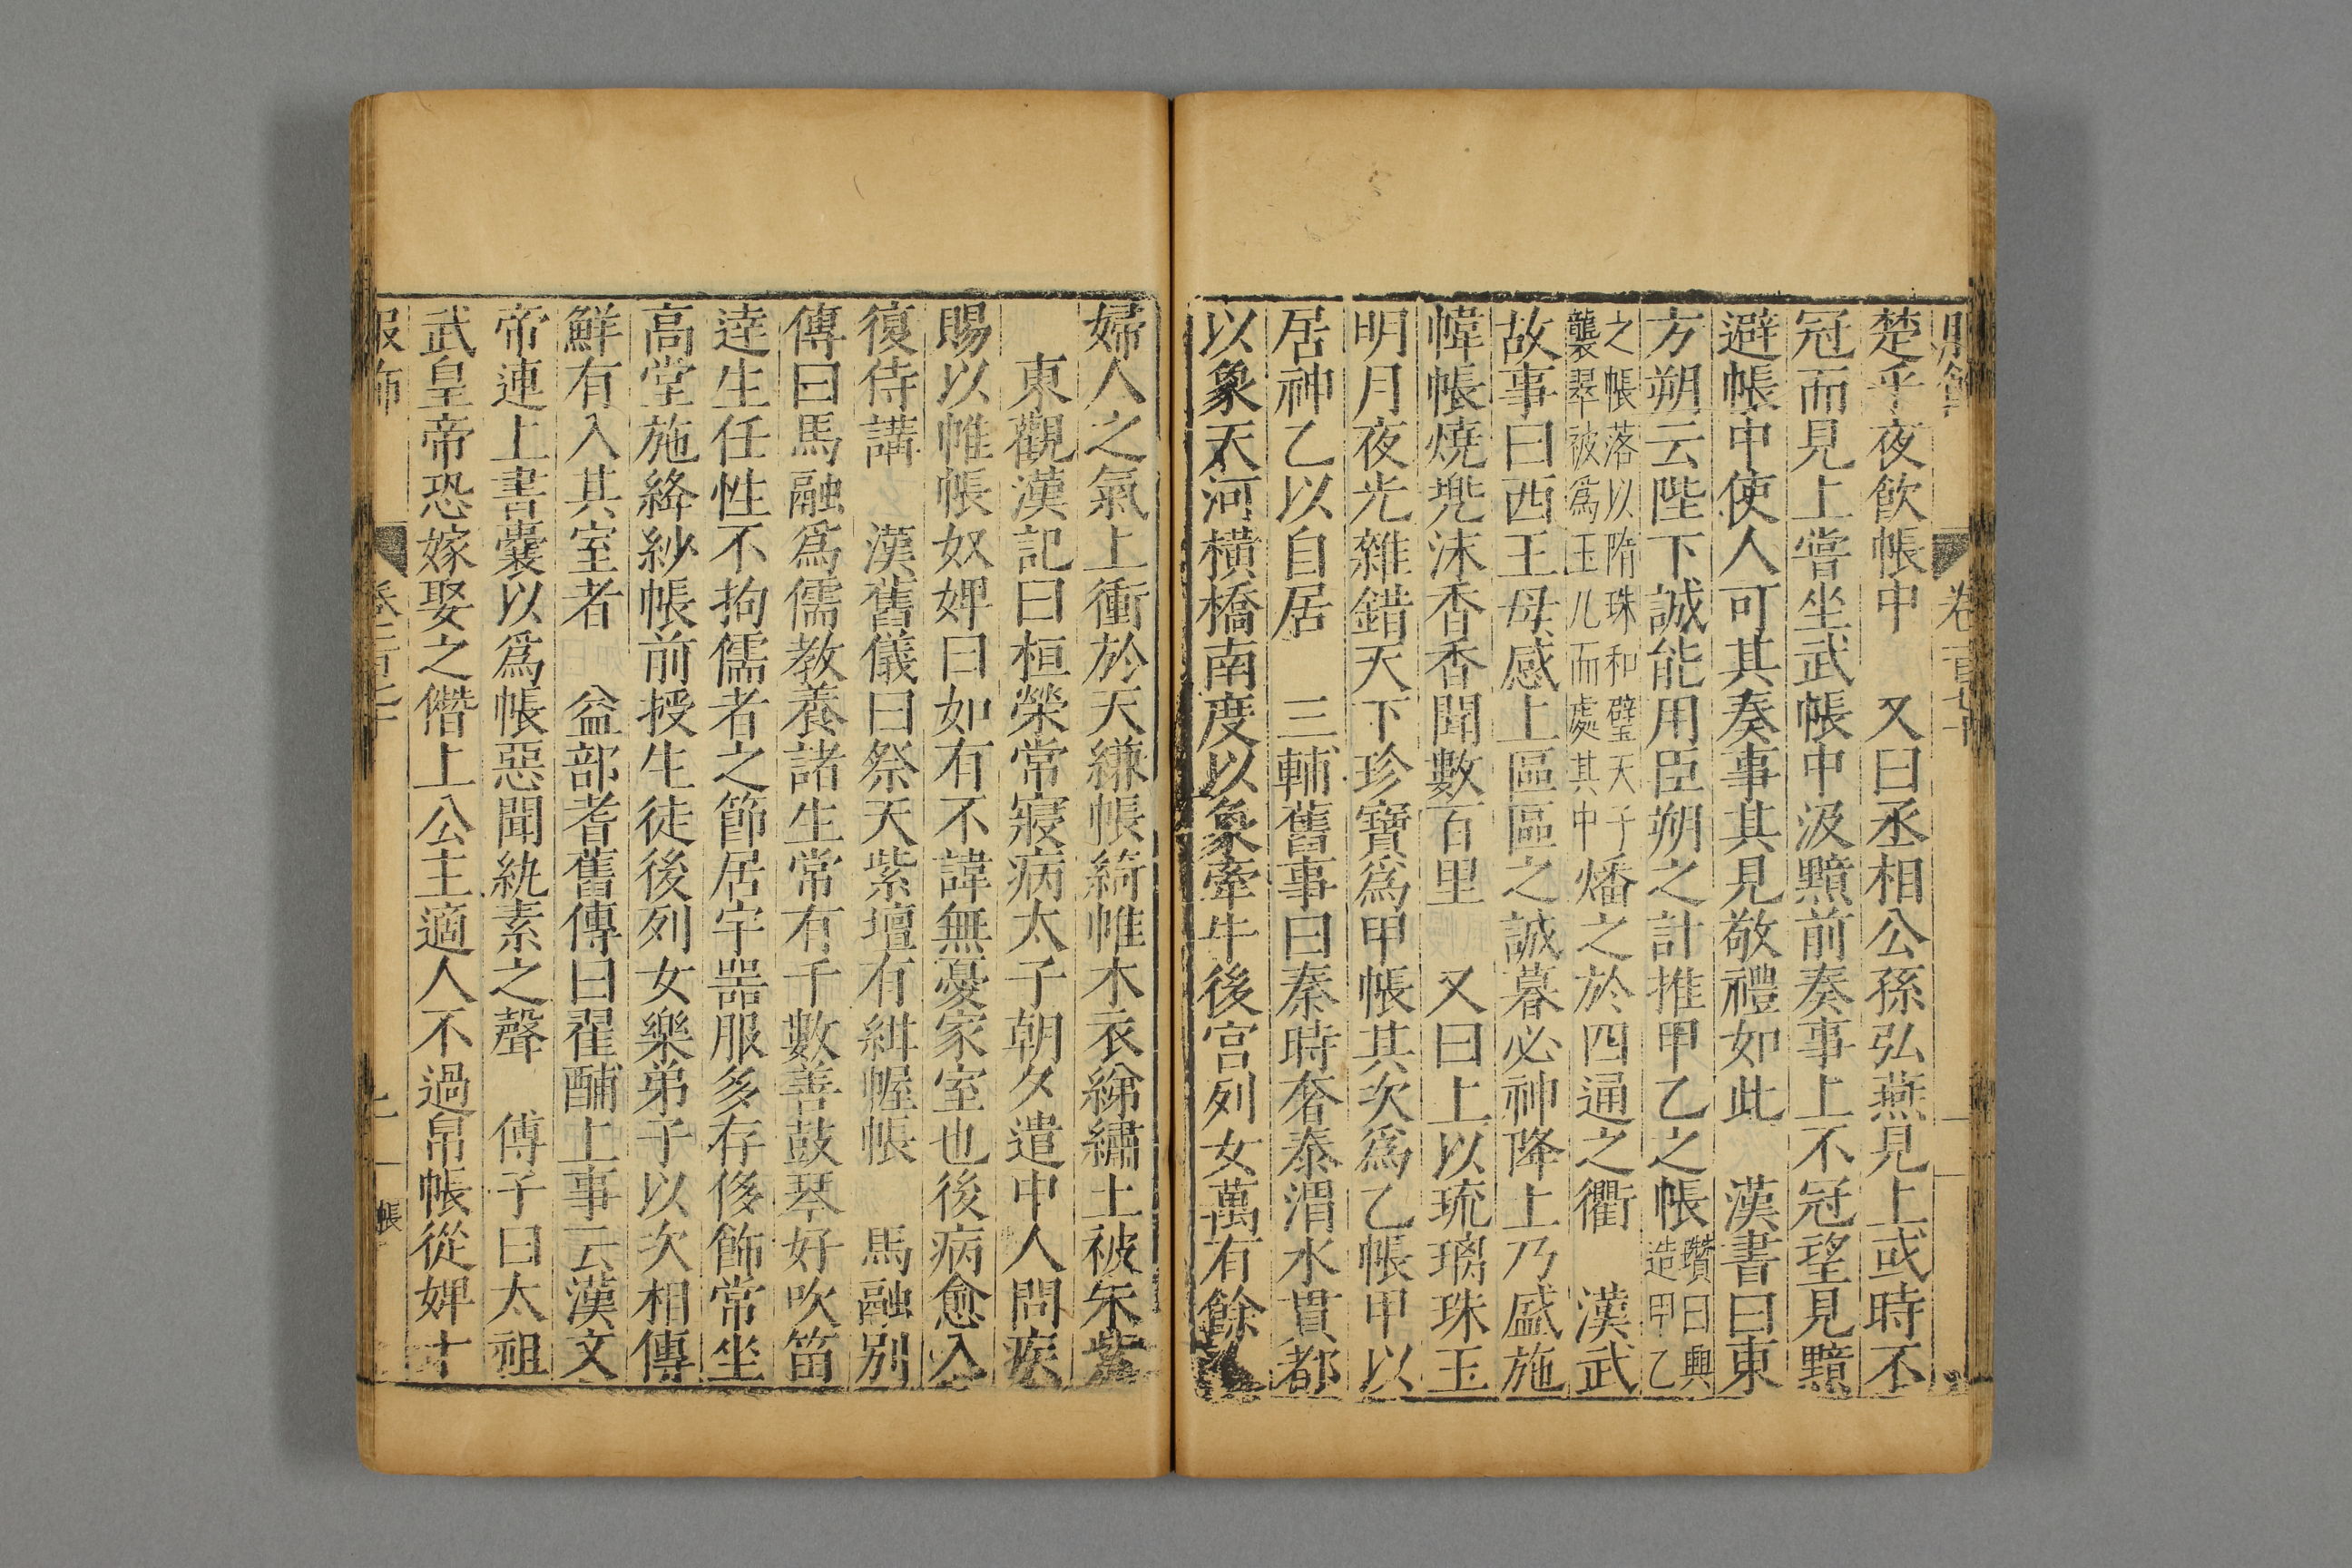 楚乎夜飲帳中　又曰丞相公孫弘燕見上或時不
冠而見上嘗坐武帳中汲黯前奏事上不冠望見黯
避帳中使人可其奏事其見敬禮如此　漢書曰東
方朔云陛下誠能用臣朔之計推甲乙之帳瓚曰興造甲乙
之帳落以隋珠和璧天子襲翠被爲玉几而處其中燔之於四通之衢　漢武
故事曰西王母感上區區之誠暮必神降上乃盛施
幃帳燒兠沫香香聞數百里　又曰上以琉璃珠玉
明月夜光雜錯天下珍寶爲甲帳其次爲乙帳甲以
居神乙以自居　三輔舊事曰秦時奢泰渭水貫都
以象天河橫橋南度以象牽牛後宫列女萬有餘人
婦人之氣上衝於天縑帳綺帷木衣綈繡土被朱紫
東觀漢記曰桓榮常寢病太子朝夕遣中人問疾
賜以帷帳奴婢曰如有不諱無憂家室也後病愈入
復侍講　漢舊儀曰祭天紫壇有紺幄帳　馬融別
傳曰馬融爲儒教養諸生常有千數善鼓琴好吹笛
達生任性不拘儒者之節居宇噐服多存侈飾常坐
高堂施絳紗帳前授生徒後列女樂弟子以次相傳
鮮有入其室者　益部耆舊傳曰翟酺上事云漢文
帝連上書囊以爲帳惡聞紈素之聲　傅子曰太祖
武皇帝恐嫁娶之僭上公主適人不過帛帳從婢十
服飾　卷　帳